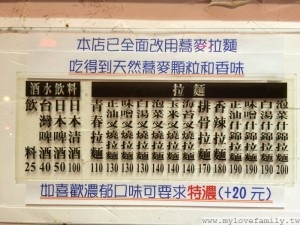 本店已全面改用蕎麥拉麵
吃得到天然蕎麥顆粒和香味
酒水飲料
飲料 25
台灣啤酒 40
日本啤酒 50
日本清酒 100
拉麵
青春拉麵 110
正油拉麵 130
味噌拉麵 130
白湯拉麵 130
玉米拉麵 130
海苔拉麵 130
叉燒拉麵 160
排骨拉麵 180
香辣拉麵
正油什錦拉麵 190
味噌什錦拉麵 190
白湯什錦拉麵 190
泡菜什錦拉麵 200
如喜歡濃郁口味可要求特濃(+20元)
www.mylovefamily.tw